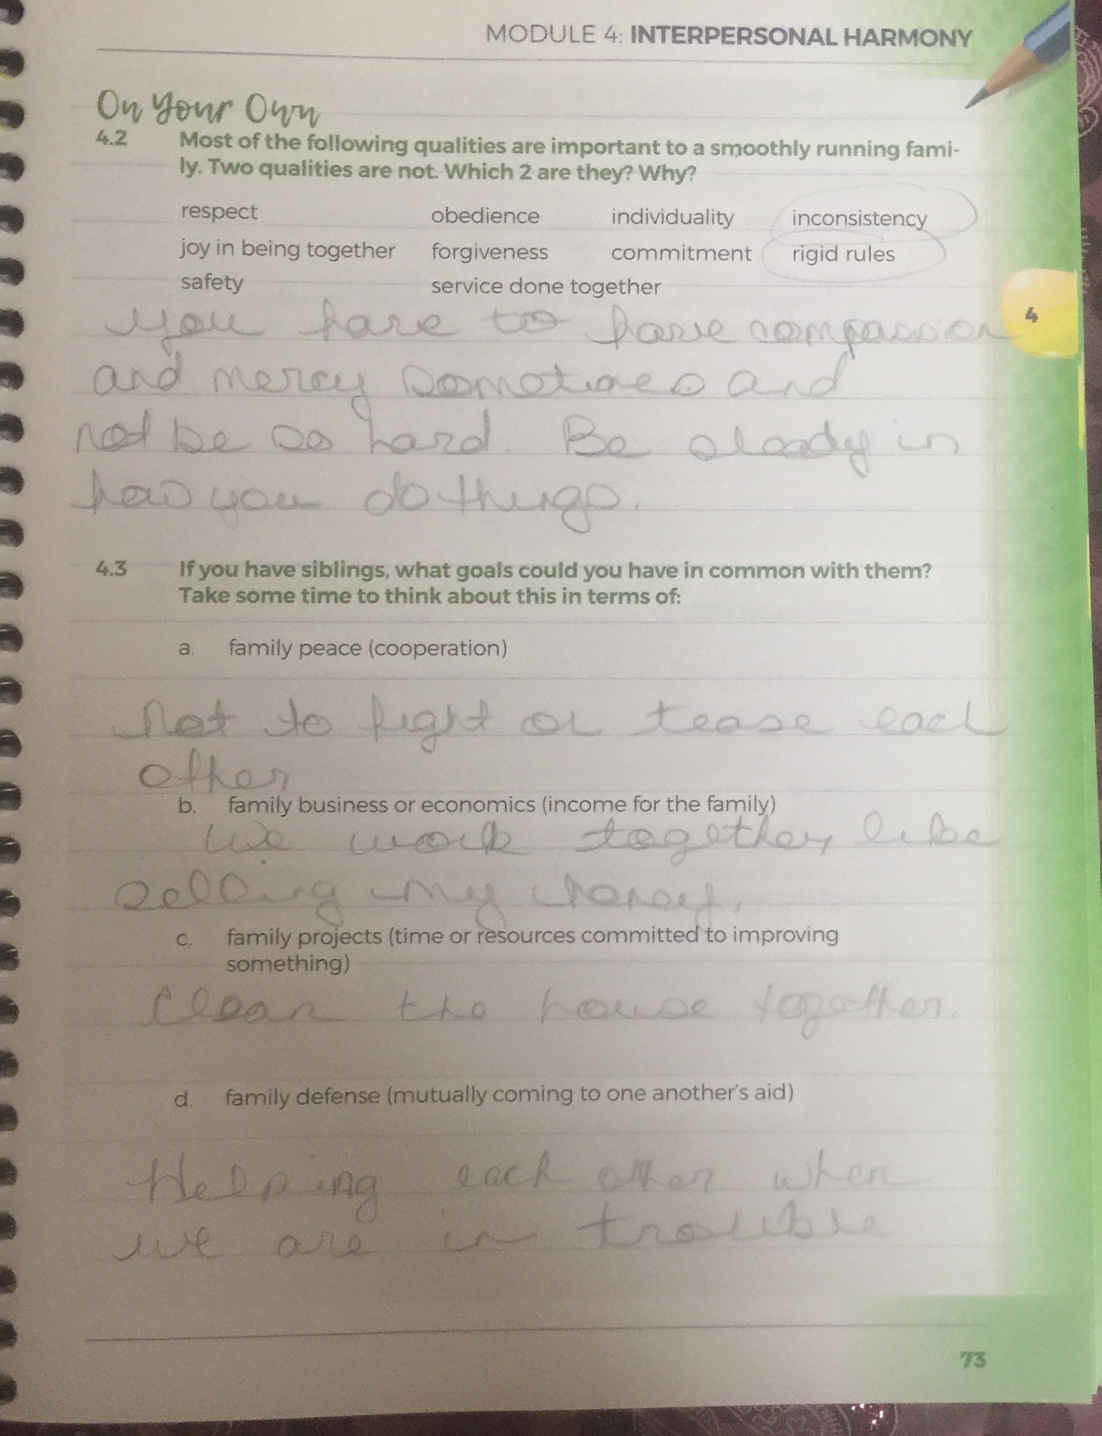 MODULE 4: INTERPERSONAL HARMONY
On Your Own
4.2 Most of the following qualities are important to a smoothly running fami-
ly. Two qualities are not. Which 2 are they? Why?
respect obedience individuality inconsistency
joy in being together forgiveness commitment rigid rules
safety service done together
You have to have compassion
4
and mercy sometimes and
not be so hard. Be steady in
how you do things.
4.3 If you have siblings, what goals could you have in common with them?
Take some time to think about this in terms of:
a. family peace (cooperation)
Not to fight or tease each
other
b. family business or economics (income for the family)
We work together, like
selling my honey.
c. family projects (time or resources committed to improving
something)
Clean the house together.
d. family defense (mutually coming to one another's aid)
Helping each other when
we are in trouble
73